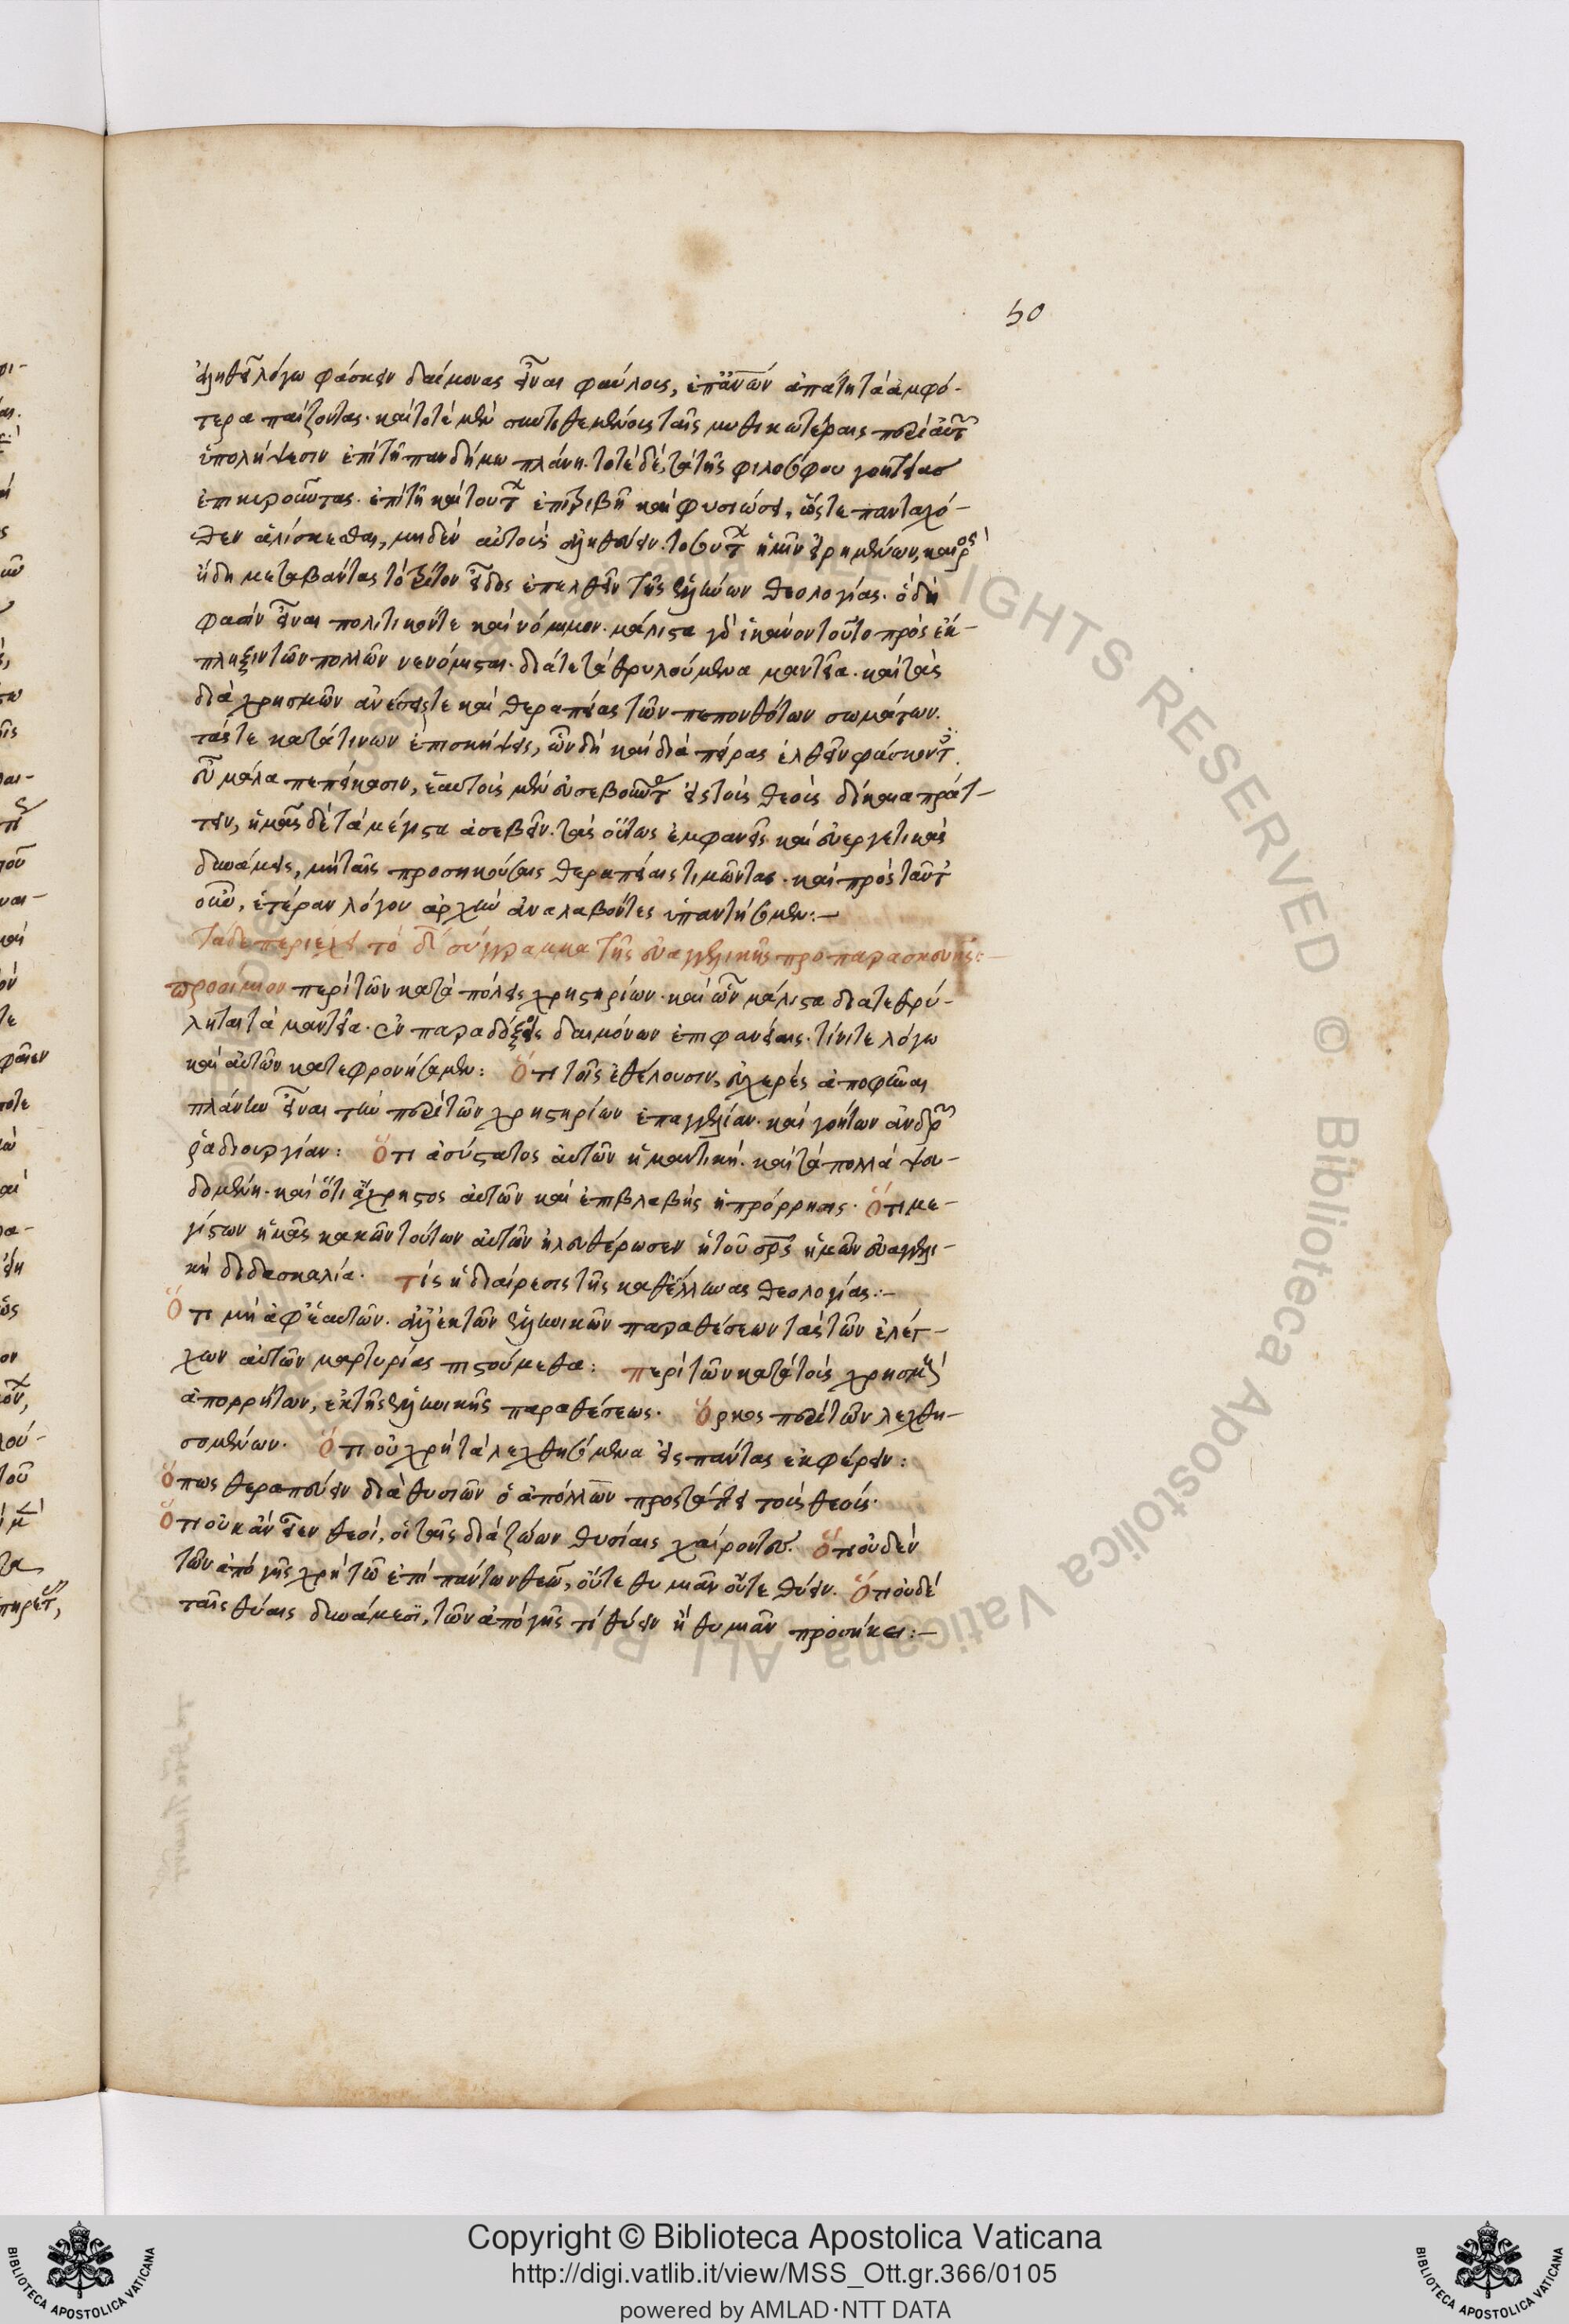 50
ἀληθεῖ λόγω φάσκειν δαίμονας εἶναι φαύλους, ἐπ' ἀνῶν ἀπάτη τὰ ἀμφό-
τερα παίζοντας. καὶ τοτὲ μὲν συντιθεμένους ταῖς μυθικωτέραις περὶ αὐτ
ὑπολήψεσιν ἐπὶ τῆ πανδήμω πλάνη. τοτὲ δὲ, τὰ τῆς φιλοσόφου γοητείασ
ἐπικυροῦντας. ἐπὶ τῆ καὶ τούτ ἐπιτριβῆ καὶ φυσιώσει, ὥστε πανταχό-
θεν ἁλίσκεσθαι, μηδὲν αὐτοὺς ἀληθεύειν. τοσούτ ἡμῖν εἰρημένων, καιρὸς
ἤδη μεταβάντας τὸ τρίτον εἶδος ἐπελθεῖν τῆς ἑλλήνων θεολογίας. ὃ δὴ
φασὶν εἶναι πολιτικόντε καὶ νόμιμον. μάλιστα γὸ ἱκανὸν τοῦτο πρὸς ἔκ-
πληξιν τῶν πολλῶν νενόμισται. διάτε τὰ θρυλούμενα μαντεῖα. καὶ τὰς
διὰ χρησμῶν ἀνέσειςτε καὶ θεραπείας τῶν πεπονθότων σωμάτων.
τάςτε κατὰ τινων ἐπισκήψεις, ὧν δὴ καὶ διὰ πείρας ἐλθεῖν φάσκοντ.
εὖ μάλα πεπείκασιν, ἑαυτοὺς μὲν εὐσεβοῦντ εἰς τοὺς θεοὺς δίκαια πράτ-
τειν, ἡμᾶς δὲ τὰ μέγιστα ἀσεβεῖν. τὰς οὕτως ἐμφανεῖς καὶ εὐεργετικὰς
δυνάμεις, μὴ ταῖς προσηκούσαις θεραπείαις τιμῶντας. καὶ πρὸς ταῦτ
οὖν, ἑτέραν λόγου ἀρχὴν ἀναλαβόντες ὑπαντήσωμεν:—
Ταδε περιέχει τὸ δ' σύγγραμμα τῆς εὐαγγελικῆς προπαρασκευῆς:—
προοιμιον περὶ τῶν κατὰ πόλεις χρηστηρίων. καὶ ὧν μάλιστα διατεθρύ-
ληται τὰ μαντεῖα. ἐν παραδόξοις δαιμόνων ἐπιφανείαις. τίνι τε λόγω
καὶ αὐτῶν κατεφρονήσαμεν: Ὅτι τοῖς ἐθέλουσιν, εὐχερὲς ἀποφῆναι
πλάνην εἶναι τὴν περὶ τῶν χρηστηρίων ἐπαγγελίαν. καὶ γοήτων ἀνδρῶν
ῥαδιουργίαν: Ὅτι ἀσύστατος αὐτῶν ἡ μαντική. καὶ τὰ πολλὰ ψευ-
δομένη. καὶ ὅτι ἄχρηστος αὐτῶν καὶ ἐπιβλαβὴς ἡ πρόρρησις. Ὅτι με-
γίστων ἡμᾶς κακῶν τούτων αὐτῶν ἠλευθέρωσεν ἡ τοῦ σρς ἡμῶν εὐαγγελι-
κὴ διδασκαλία. Τίς ἡ διαίρεσις τῆς καθέλληνας θεολογίας:—
Ὅτι μὴ ἀφ' ἑαυτῶν. ἀλλ' ἐκ τῶν ἑλληνικῶν παραθέσεων τὰς τῶν ἐλέγ-
χων αὐτῶν μαρτυρίας πιστούμεθα: περὶ τῶν κατὰ τοὺς χρησμοὺς
ἀπορρήτων, ἐκ τῆς ἑλληνικῆς παραθέσεως. Ὅρκος περὶ τῶν λεχθη-
σομένων. Ὅτι οὐ χρὴ τὰ λεχθησόμενα εἰς πάντας ἐκφέρειν:
Ὅπως θεραπεύειν διὰ θυσιῶν ὁ ἀπόλλων προστάττει τοὺς θεούς.
Ὅτι οὐκ ἂν εἶεν θεοί, οἱ ταῖς διὰ ζώων θυσίαις χαίροντες. Ὅτι οὐδὲν
τῶν ἀπὸ γῆς χρὴ τῶ ἐπὶ πάντων θεῶ, οὔτε θυμιᾶν οὔτε θύειν. Ὅτι οὐδὲ
ταῖς θείαις δυνάμεσι, τῶν ἀπὸ γῆς τί θύειν ἢ θυμιᾶν προσήκει:—
Copyright © Biblioteca Apostolica Vaticana
http://digi.vatlib.it/view/MSS_Ott.gr.366/0105
powered by AMLAD·NTT DATA